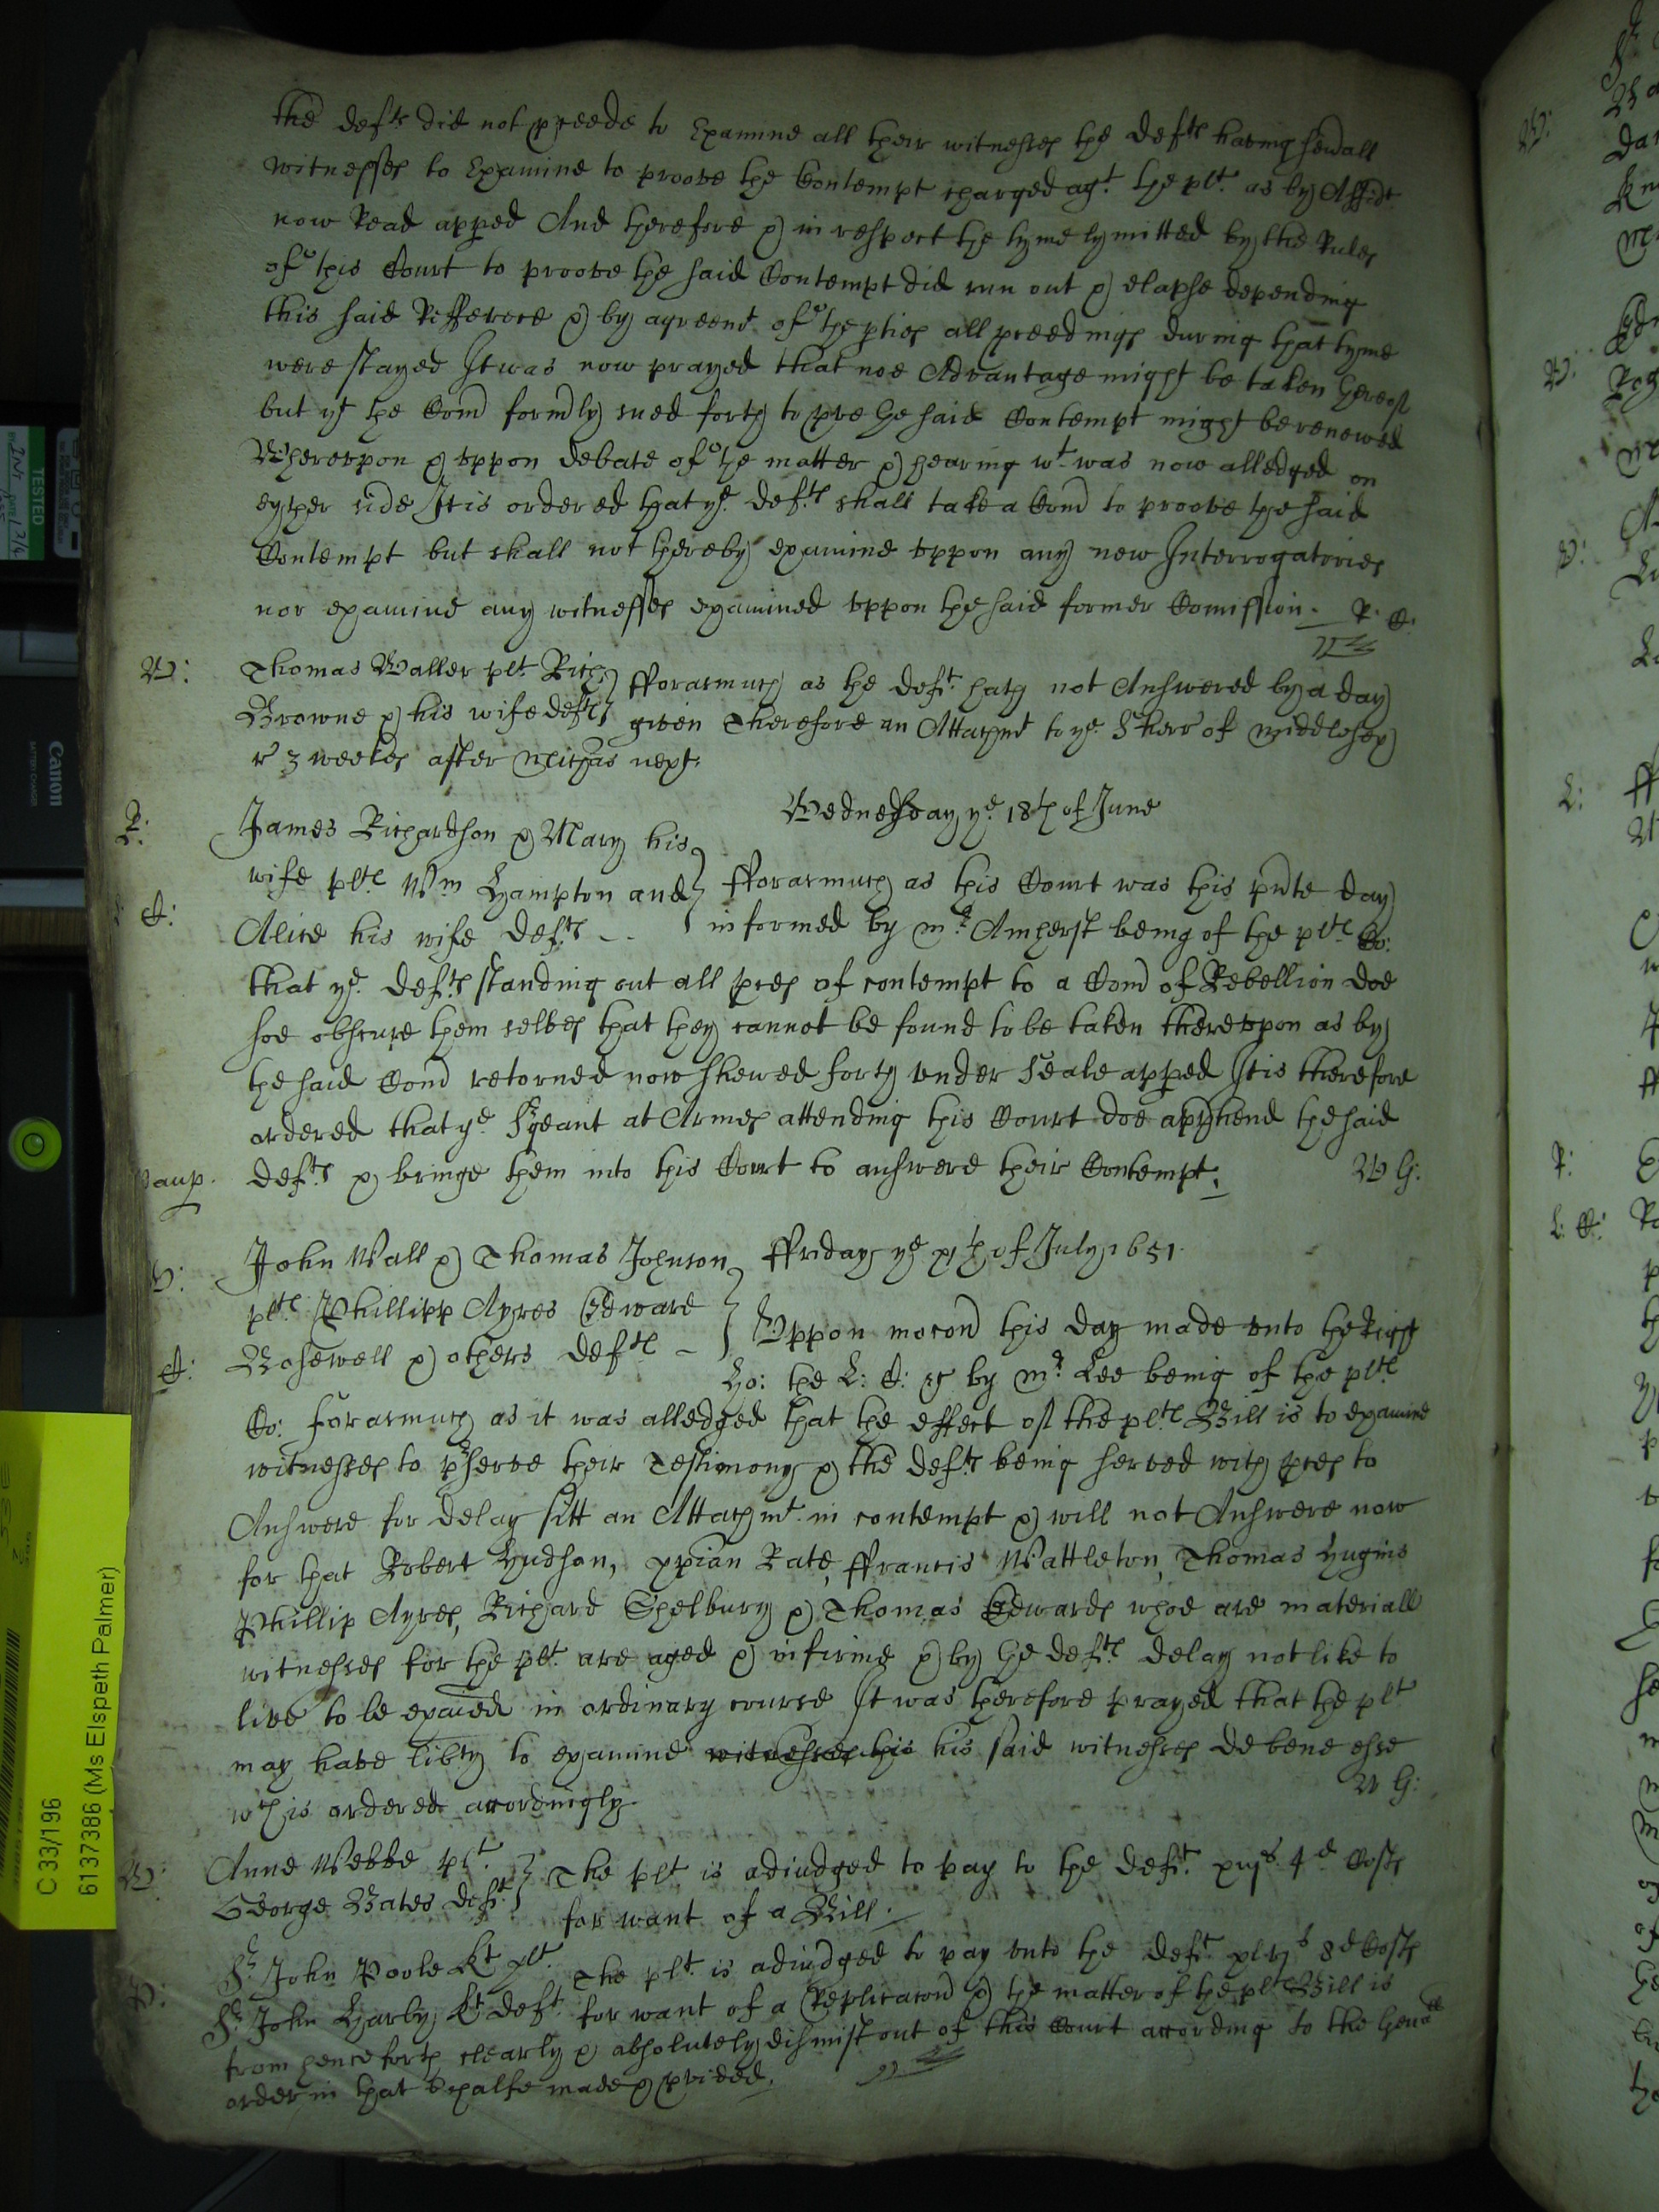 the defts did not pceede to Examine all their witnesses the Defts having sevall
witnesses to Examine to proove the Contempt charged agt. the plt. as by Affidt
now Read apped And therefore & in respect the tyme lymitted by the Rules
of this Court to proove the said Contempt did run out & elapse depending
this said Refference & by agreemt of the pties all pceedings during that tyme
were stayed It was now prayed that noe Advantage might be taken hereof
but yt the Comd formly sued forth to pve the said Contempt might be renewed
Whereupon & uppon debate of the matter & hearing wt was now alledged on
eyther side It is ordered that ye. Defts shall take a Comd to proove the said
Contempt but shall not thereby examine uppon any new Interrogatories
nor examine any witnesses examined uppon the said former Comission. R. C:
W: Thomas Waller plt Rich:
Browne & his wife defts
fforasmuch as the deft. hath not Answered by a day
given Therefore an Attachmt to ye. Sherr of Middlesex
r 3 weekes after Michas next.
Wednesday ye. 18th of June
R: James Richardson & Mary his
wife plts Wm Hampton and
C: Alice his wife Defts
fforasmuch as this Court was this pnte day
informed by mr. Amherst being of the plts Co:
that ye. Defts standing out all pces of contempt to a Comd of Rebellion doe
soe obscure them selves that they cannot be found to be taken thereupon as by
the said Comd retorned now shewed forth under Seale apped It is therefore
ordered that ye. Sgeant at Armes attending this Court doe apphend the said
paup. defts & bringe them into this Court to answere their Contempt. W G:
John Wall & Thomas Johnson
ffriday ye xjth of July 1651.
plts Phillipp Ayres Edward
C: Bosewell & others Defts
Uppon mocond this day made unto the Right
Ho: the L: C: &c by mr. Lee being of the plts
Co: forasmuch as it was alledged that the effect of the plts Bill is to examine
witnesses to pserve their Testimony & the defts being served with pces to
Answere for delay sitt an Attachmt. in contempt & will not Answere now
for that Robert Hudson, xpian Rate, ffrancis Wattleton, Thomas Hugins
Phillip Ayres, Richard Spelbury & Thomas Edwards whoe are materiall
witnesses for the plt. are aged & infirme & by the defts delay not like to
live to be exaied in ordinary course It was therefore prayed that the plt
may have libty to examine witnesses his his said witnesses de bene esse
wch is ordered accordingly. W G:
W: Anne Webbe plt.
George Bates deft
The plt is adiudged to pay to the deft. xiijs 4d Costs
for want of a Bill.
P: Sr John Poole Kt plt.
Sr John Harby Kt deft
The plt. is adiudged to pay unto the deft. xlvjs 8d Costs
for want of a Replicacond & the matter of the plts Bill is
from henceforth clearly & absolutely dismist out of this Court according to the Genall
order in that behalfe made & pvided.
TESTED
Canon
BATTERY CHARGER
C 33/196
6137386 (Ms Elspeth Palmer)